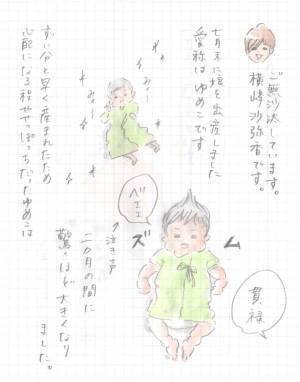 ご無沙汰しています。
横峰沙弥香です。
七月末に娘を出産しました
愛称は ゆめこです
みィー
みィー
ずい分と早く産まれたため
心配になる程やせっぽっちだったゆめこは
ベェェ
↑泣き声
二カ月の間に
驚くほど大きくなり
ました。
ズム
貫禄